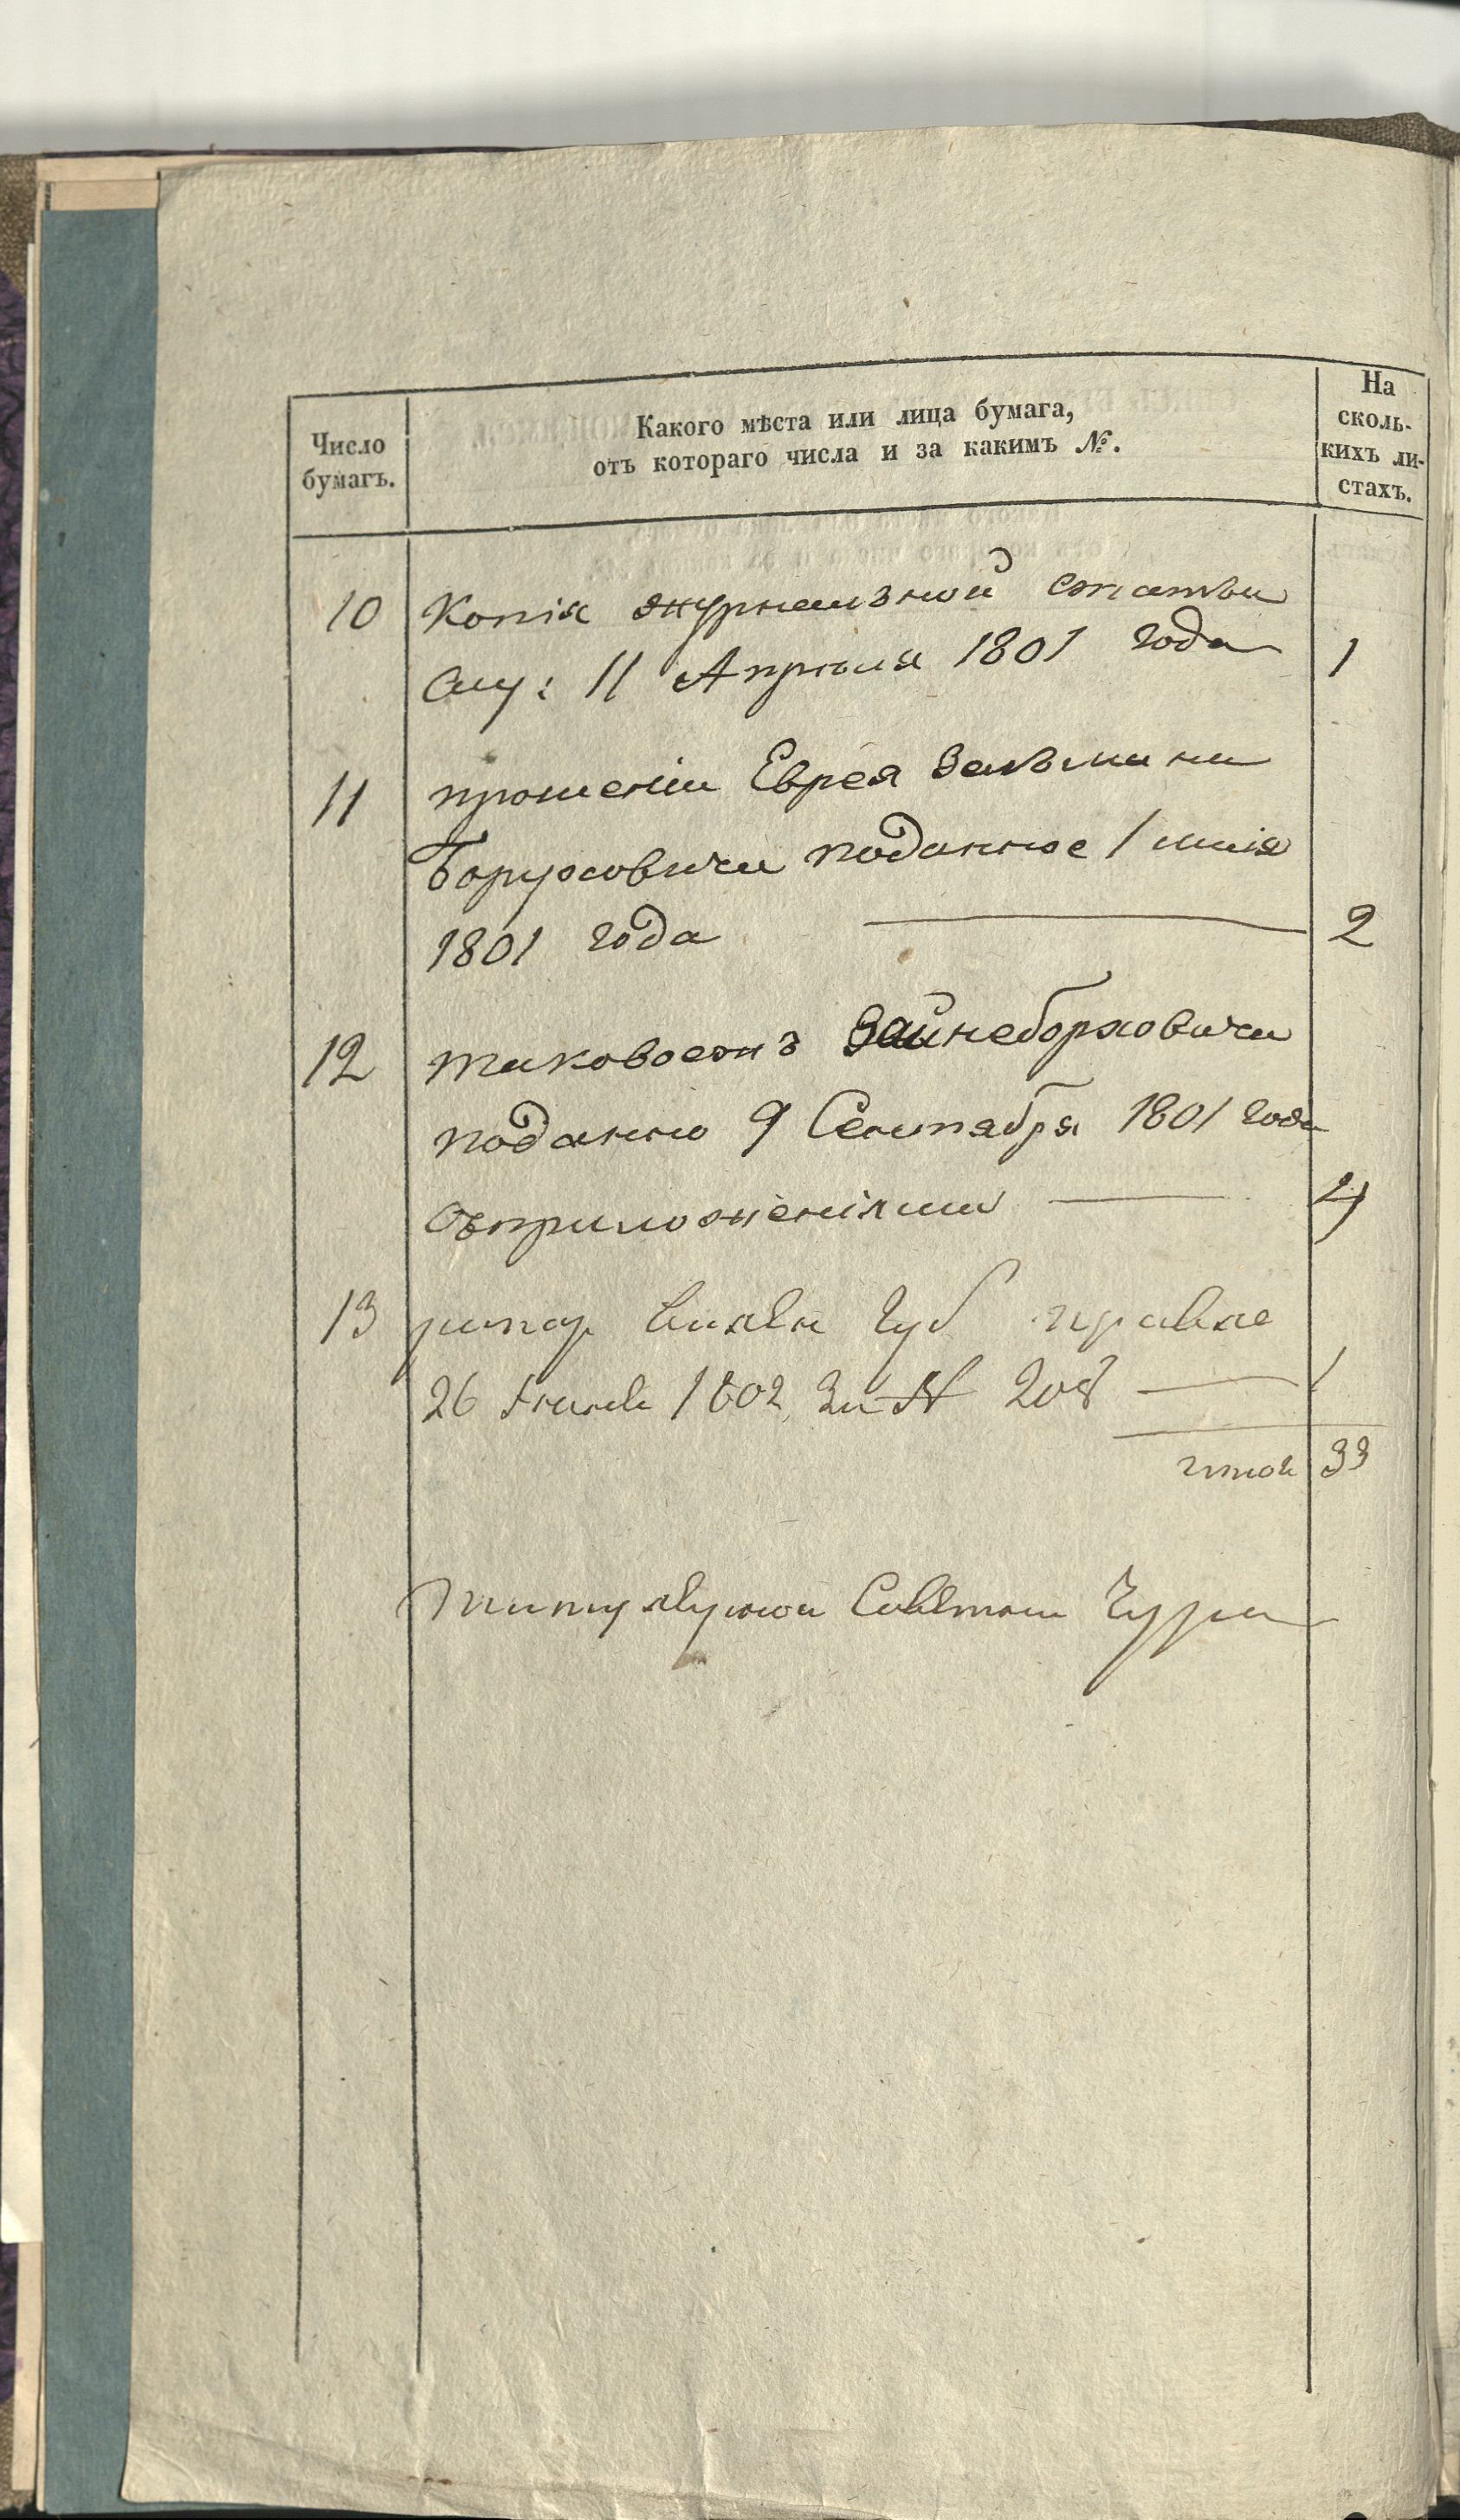 Число
бумагъ.
Какого мѣста или лица бумага,
отъ котораго числа и за какимъ №.
На
сколь-
кихъ ли-
стахъ.
10 Копія журнальной статьи
слу: 11 Апрѣля 1801 года 1
11 прошеніи Еврея Залъмана
Боруховича поданное 1 маія
1801 года 2
12 таковоежъ
поданно 9 Сентября 1801 года
съприложеніями 4
13 рапор губ правле
26 1802 за N 208 1
итог 33
титулярной Советник